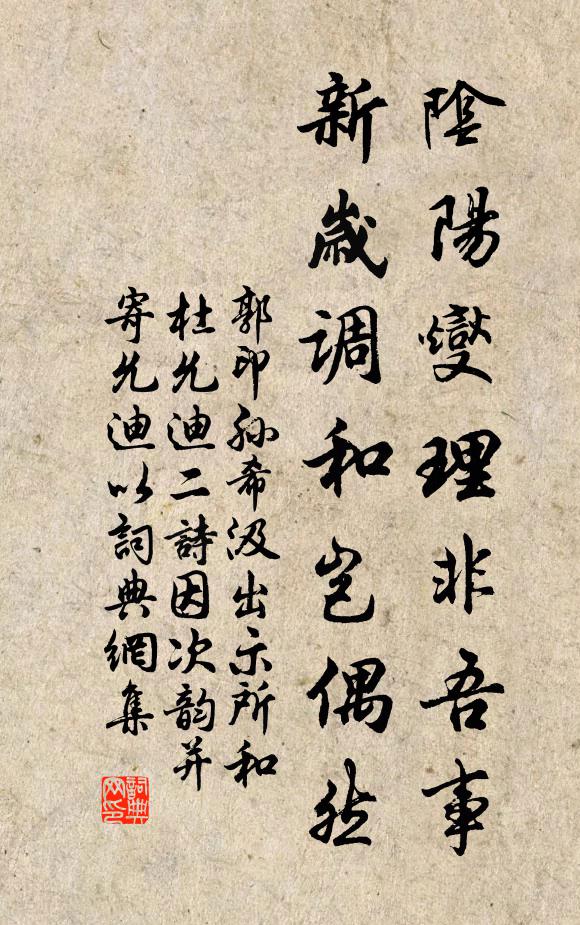 陰陽燮理非吾事
新歲調和豈偶然
郭印孫希汲出示所和
杜允迪二詩因次韵并
寄允迪以詞典網集
詞典
网印